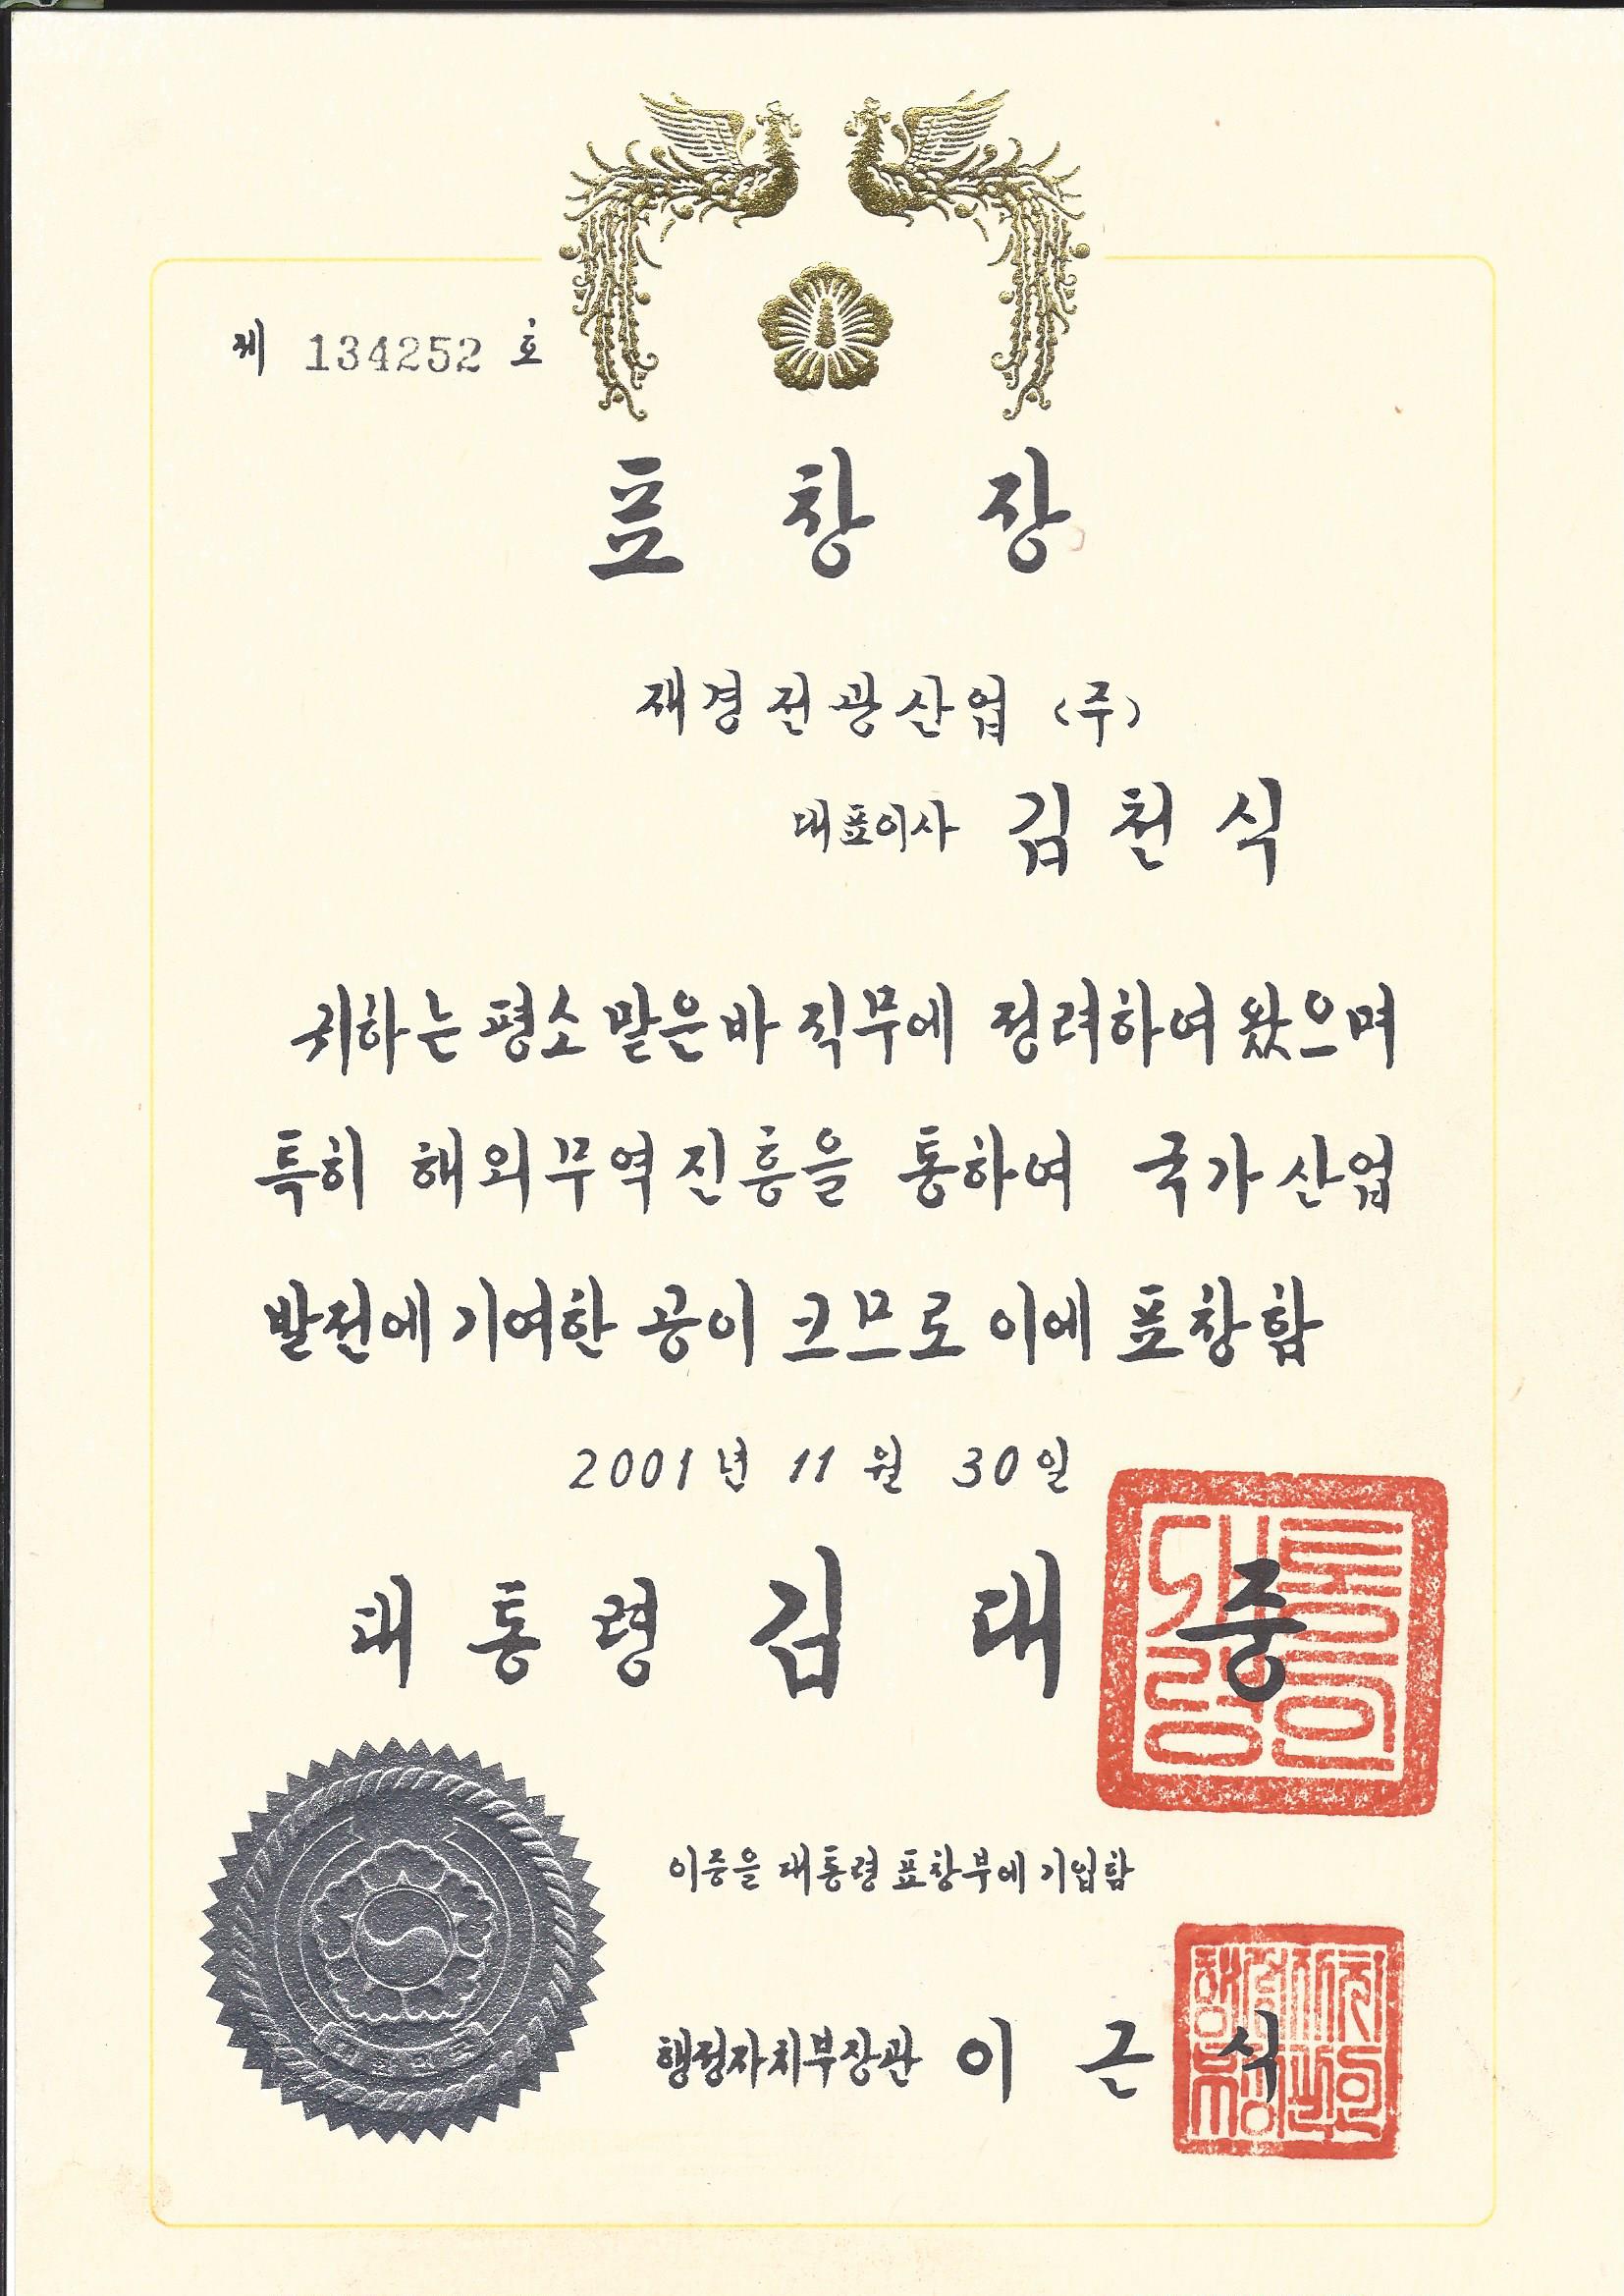 제 134252 호
표 창 장
재경전광산업 (주)
대표이사 김 천 식
귀하는 평소 맡은바 직무에 정려하여 왔으며
특히 해외무역진흥을 통하여 국가산업
발전에 기여한 공이 크므로 이에 표창함
2001년 11월 30일
대 통 령 김 대 중
이증을 대통령 표창부에 기입함
행정자치부장관 이 근 식